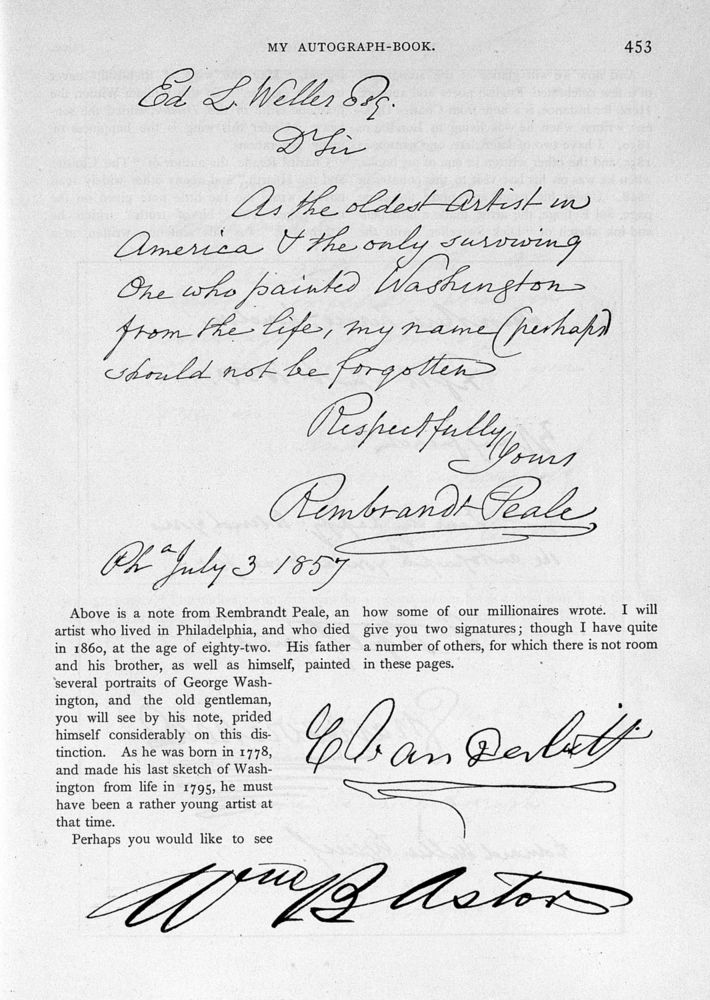 MY AUTOGRAPH-BOOK.
453
Ed L. Weller Esq.
Dr Sir
As the oldest Artist in
America & the only surviving
One who painted Washington
from the life, my name (perhaps)
should not be forgotten
Respectfully
Yours
Rembrandt Peale
Pha July 3 1857
Above is a note from Rembrandt Peale, an
artist who lived in Philadelphia, and who died
in 1860, at the age of eighty-two. His father
and his brother, as well as himself, painted
several portraits of George Wash-
ington, and the old gentleman,
you will see by his note, prided
himself considerably on this dis-
tinction. As he was born in 1778,
and made his last sketch of Wash-
ington from life in 1795, he must
have been a rather young artist at
that time.
Perhaps you would like to see
how some of our millionaires wrote. I will
give you two signatures; though I have quite
a number of others, for which there is not room
in these pages.
C Van Derbilt
Wm B Astor